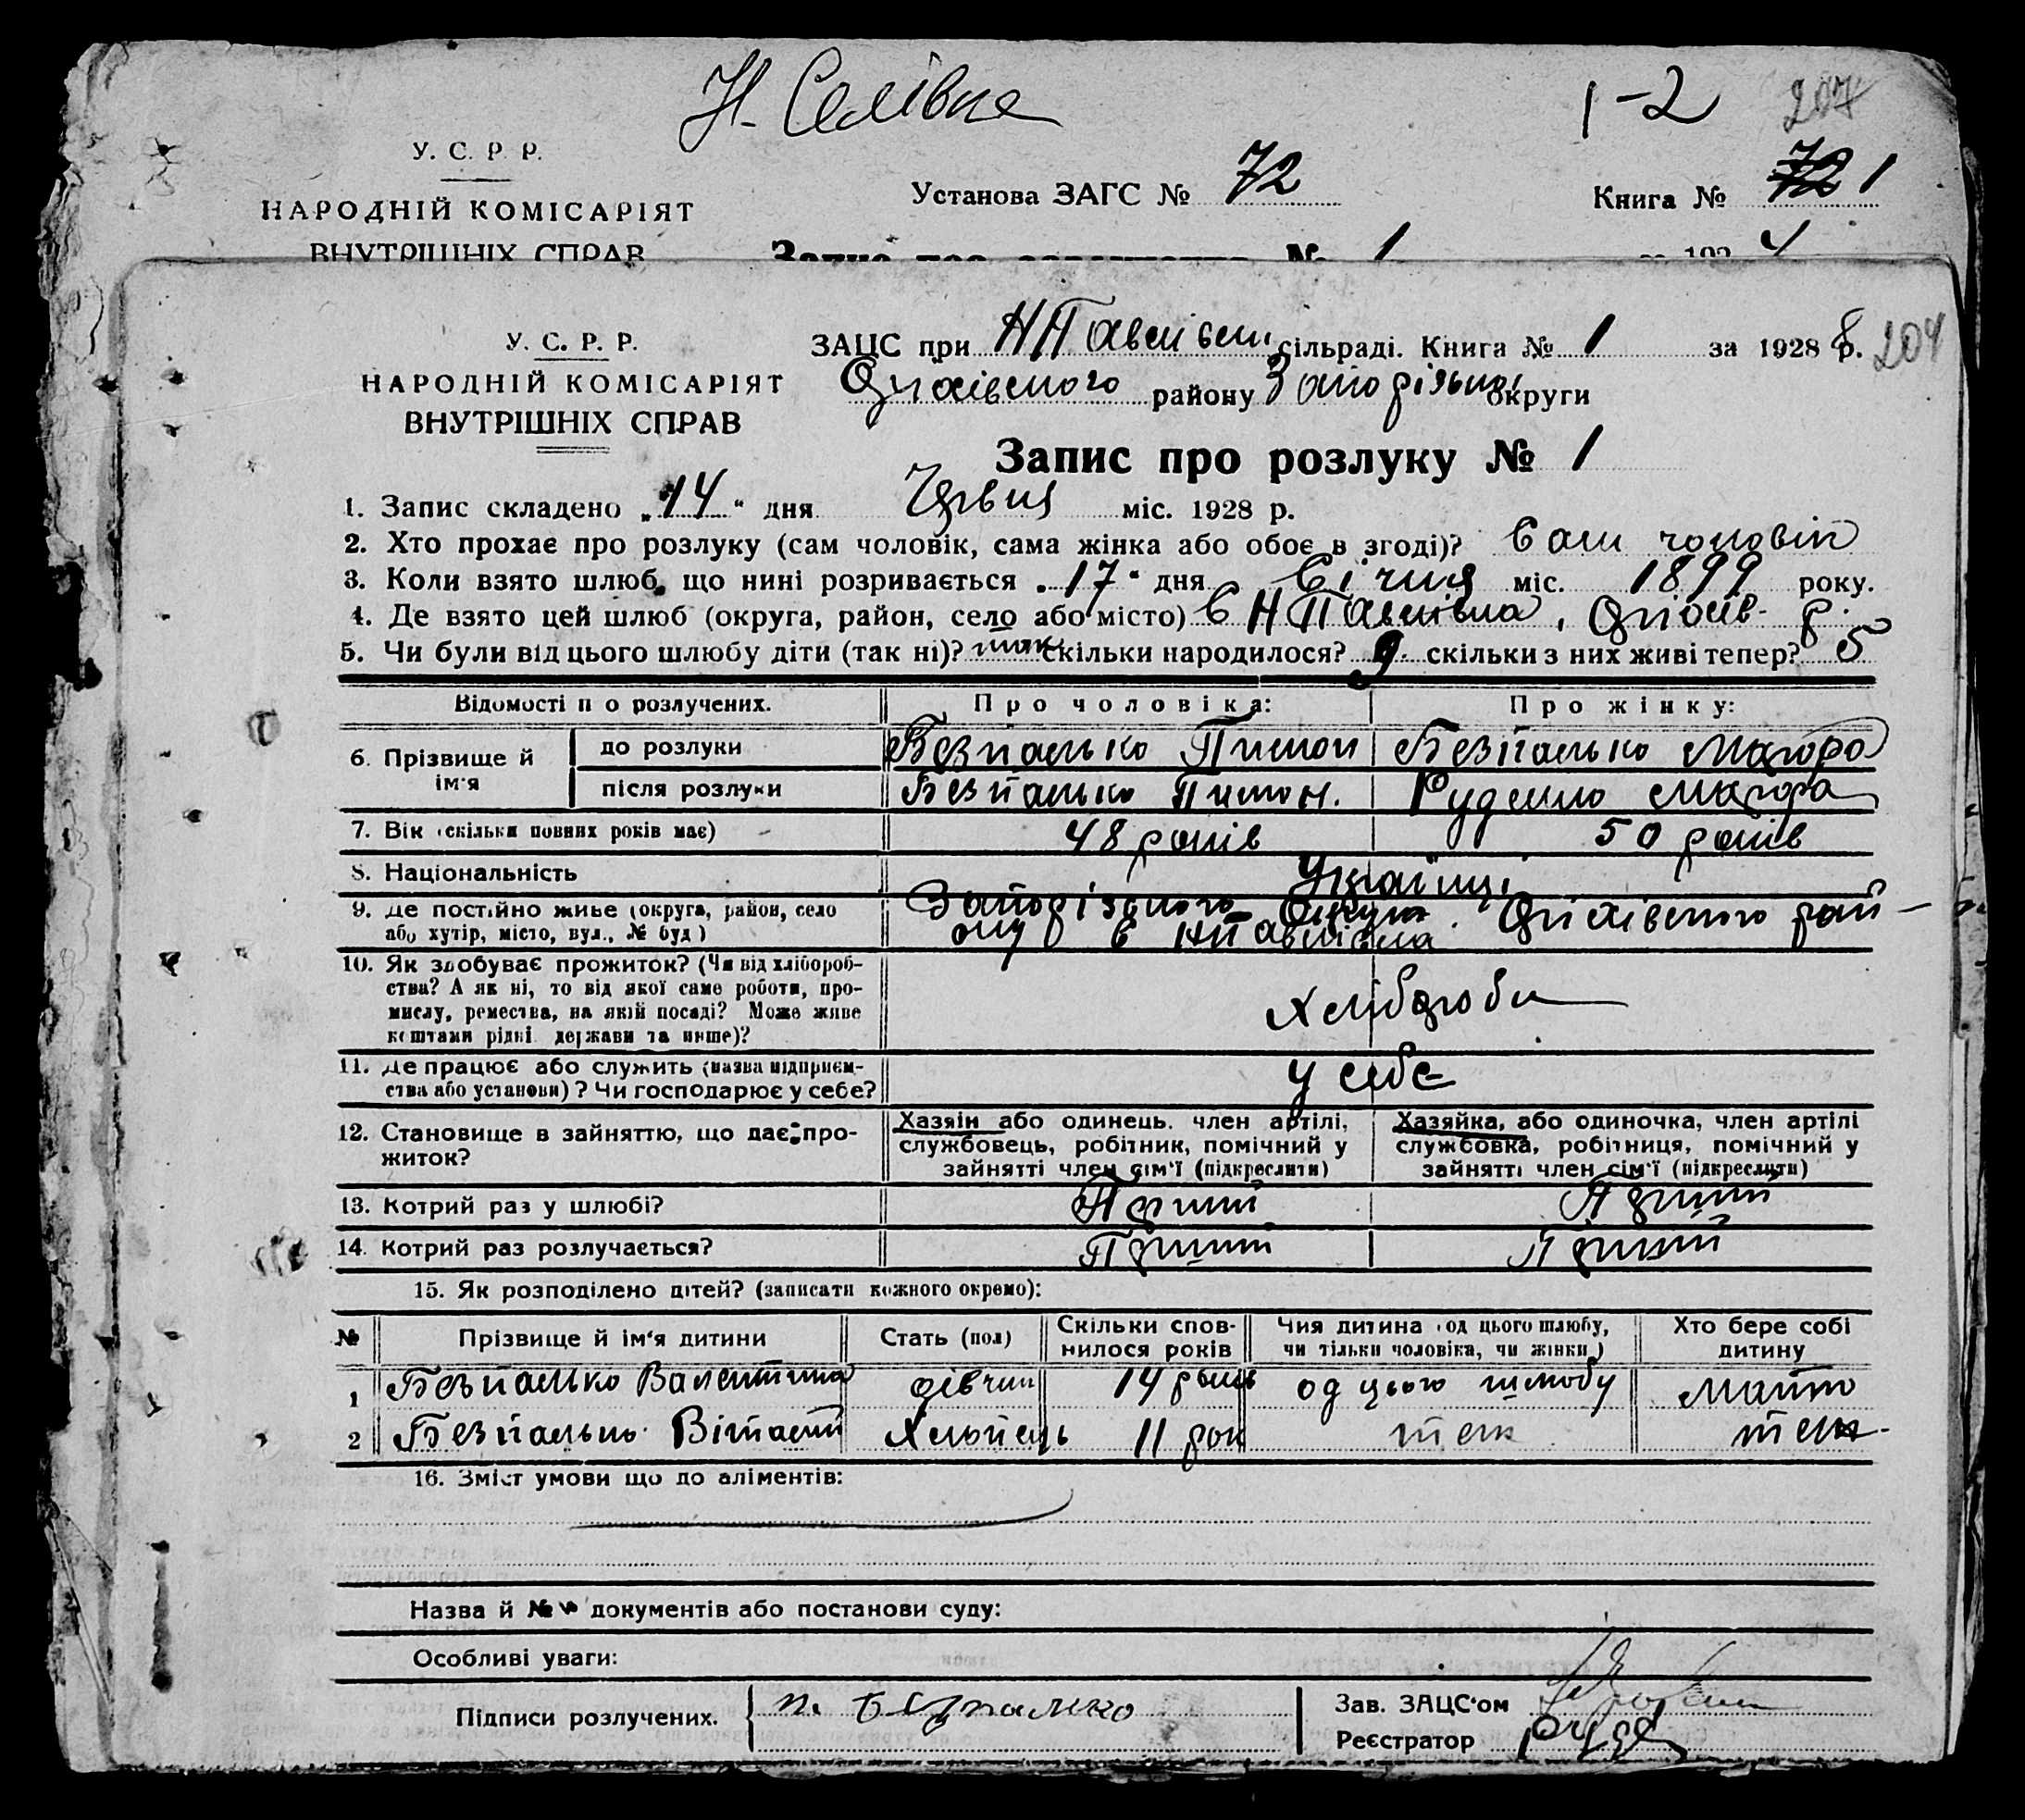 Н. Селівка
1-2
207
У. С. Р. Р.
Установа ЗАГС № 72
Книга № 72 1
НАРОДНІЙ КОМІСАРІЯТ
ВНУТРІШНІХ СПРАВ
№ 1
192 4
У. С. Р. Р.
ЗАЦС при НПавлівськ сільраді. Книга № 1 за 1928 8 р. 204
НАРОДНІЙ КОМІСАРІЯТ
Оріхівського району Запорізької округи
ВНУТРІШНІХ СПРАВ
Запис про розлуку № 1
1. Запис складено „14" дня Червня міс. 1928 р.
2. Хто прохає про розлуку (сам чоловік, сама жінка або обоє в згоді)? Сам чоловік
3. Коли взято шлюб, що нині розривається „17" дня Січня міс. 1899 року.
4. Де взято цей шлюб (округа, район, село або місто) С НПавлівка, Оріхів- р.
5. Чи були від цього шлюбу діти (так ні)? так скільки народилося? 9 скільки з них живі тепер? 5
Відомості по розлучених. Про чоловіка: Про жінку:
6. Прізвище й ім'я до розлуки Безпалько Пимон Безпалько Мотря
після розлуки Безпалько Пимон. Руденко Мотря
7. Вік (скільки повних років має) 48 років 50 років
8. Національність Українці
9. Де постійно живе (округа, район, село
або хутір, місто, вул., № буд) Запорізького Округу Оріхівського рай-
ону С НПавлівка
10. Як здобуває прожиток? (Чи від хлібороб-
ства? А як ні, то від якої саме роботи, про-
мислу, ремества, на якій посаді? Може живе
коштами рідні держави та инше)? Хлібороби
11. Де працює або служить (назва підприєм-
ства або установи)? Чи господарює у себе? У себе
12. Становище в зайняттю, що дає про-
житок?
Хазяїн або одинець, член артілі,
службовець, робітник, помічний у
зайнятті член сім'ї (підкреслити)
Хазяйка, або одиночка, член артілі
службовка, робітниця, помічний у
зайнятті член сім'ї (підкреслити)
13. Котрий раз у шлюбі? Перший Перший
14. Котрий раз розлучається? Перший Перший
15. Як розподілено дітей? (записати кожного окремо):
№ Прізвище й ім'я дитини Стать (пол) Скільки спов-
нилося років Чия дитина (од цього шлюбу,
чи тільки чоловіка, чи жінки) Хто бере собі
дитину
1 Безпалько Валентина дівчин 14 років од цього шлюбу Мати
2 Безпалько Віталій Хлопець 11 рок теж теж
16. Зміст умови що до аліментів:
Назва й №№ документів або постанови суду:
Особливі уваги:
Підписи розлучених. П. Безпалько
Зав. ЗАЦС'ом
Реєстратор